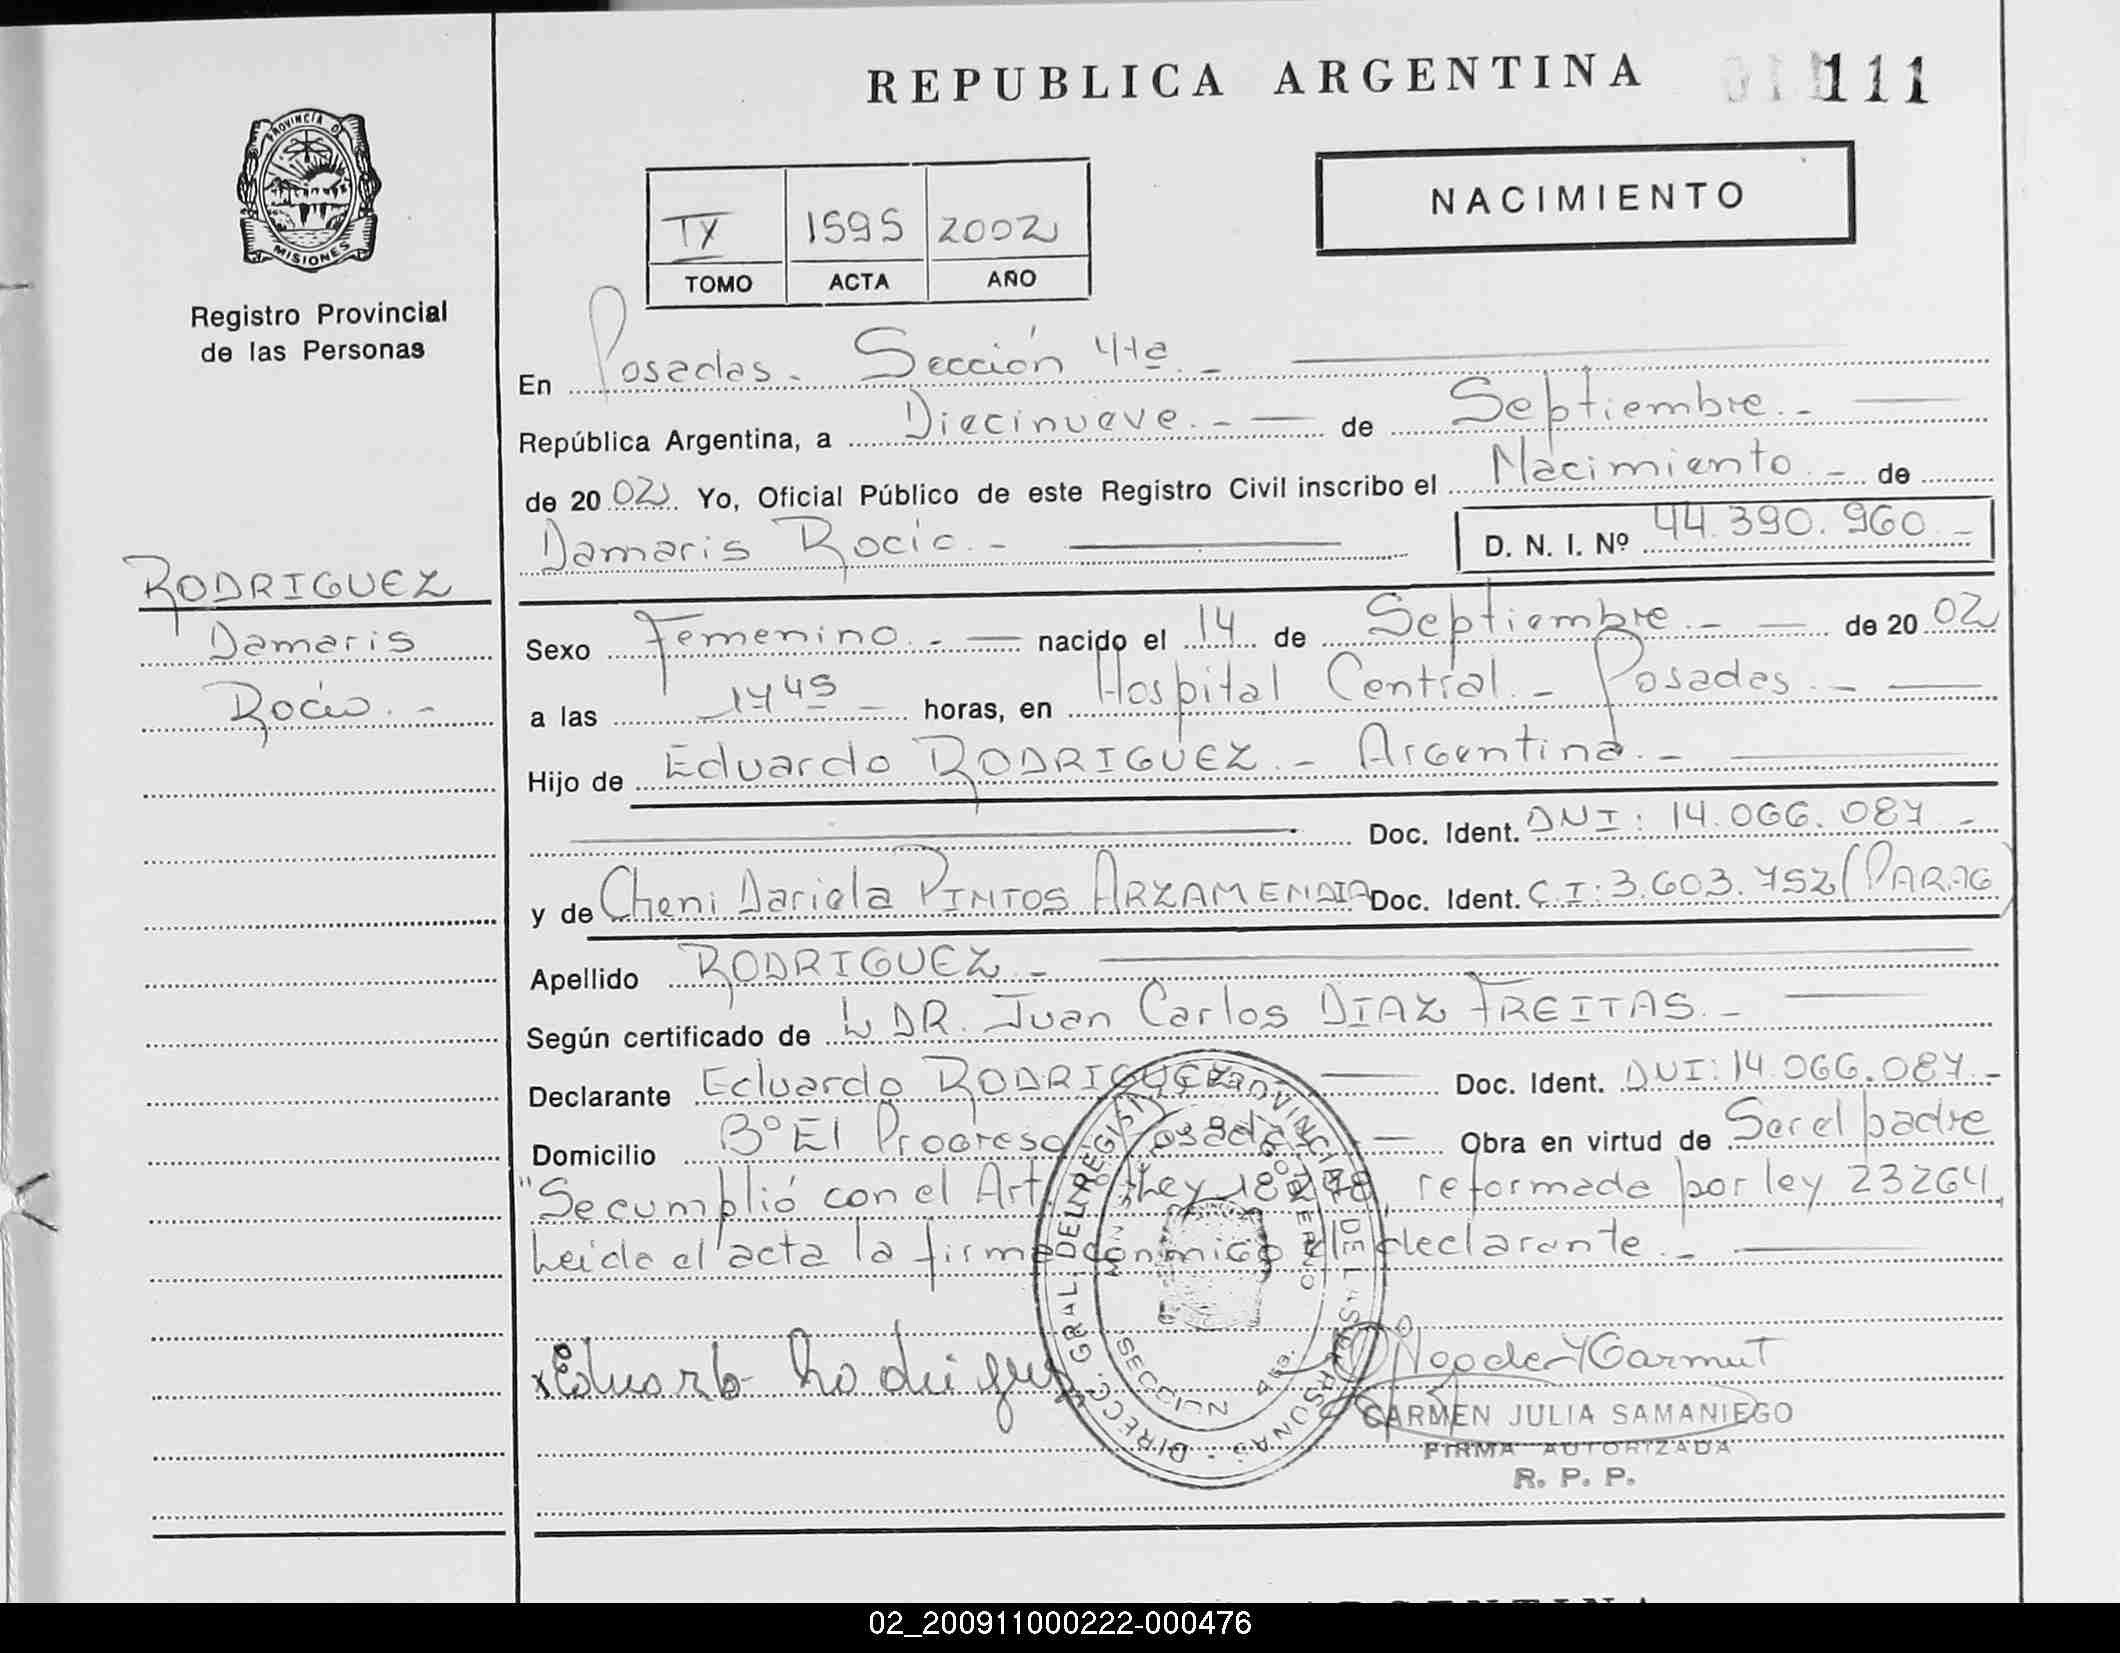 REPUBLICA ARGENTINA
111
PROVINCIA DE MISIONES
NACIMIENTO
1595 2002
TOMO ACTA AÑO
Registro Provincial
de las Personas
En Posadas. Sección 4ta. -
República Argentina, a Diecinueve. - de Septiembre. -
de 20 02. Yo, Oficial Público de este Registro Civil inscribo el Nacimiento. - de
Damaris Rocio. - D. N. I. Nº 44.390.960 -
RODRIGUEZ
Damaris
Rocio. -
Sexo Femenino. - nacido el 14 de Septiembre. - de 20 02
a las 1745 horas, en Hospital Central. - Posadas. -
Hijo de Eduardo RODRIGUEZ. - Argentina. -
Doc. Ident. DNI: 14.066.087 -
y de Cheni Dariela PINTOS ARZAMENDIA Doc. Ident. C.I: 3.603.752 (PARAG)
Apellido RODRIGUEZ. -
Según certificado de DR. Juan Carlos DIAZ FREITAS. -
Declarante Eduardo RODRIGUEZ Doc. Ident. DNI: 14.066.087. -
Domicilio Bº El Progreso Posadas - Obra en virtud de Ser el padre
"Se cumplió con el Art. Ley 18248, reformada por ley 23264,
Leida el acta la firma conmigo el declarante. -
DIRECC. GRAL. DEL REGISTRO PROVINCIAL DE LAS PERSONAS
GOBIERNO
SECCION 4ta.
x Eduardo Rodriguez
CARMEN JULIA SAMANIEGO
FIRMA AUTORIZADA
R. P. P.
02_200911000222-000476